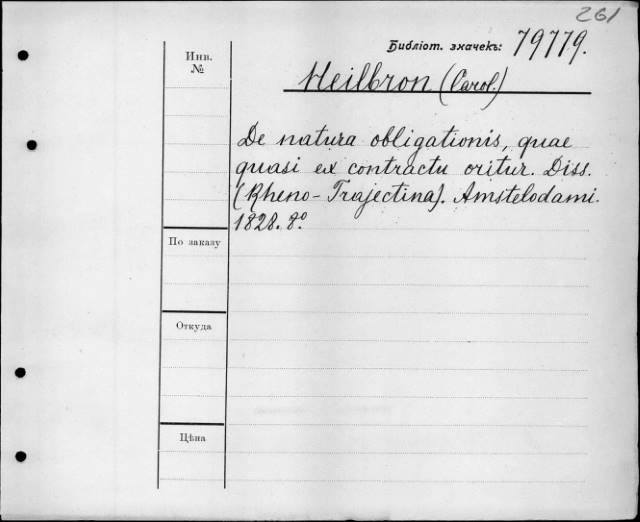 261
Библіот. значекъ: 79779.
Инв.
№
Heilbron (Carol.)
De natura obligationis, quae
quasi ex contractu oritur. Diss.
(Rheno-Trajectina). Amstelodami.
1828. 8°.
По заказу
Откуда
Цѣна